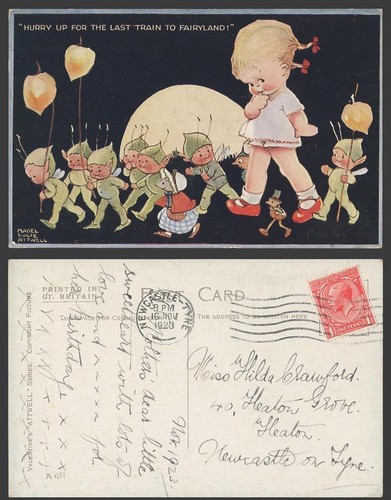 "HURRY UP FOR THE LAST TRAIN TO FAIRYLAND!"
MABEL
LUCIE
ATTWELL
PRINTED IN
GT. BRITAIN.
CARD
THE ADDRESS TO BE WRITTEN HERE
NEWCASTLE-TYNE
9 PM
16 NOV
1923
Nov. 1923.
dear little
sweetheart with lots of
love and x x x x for
her birthday x x x
VALENTINE'S "ATTWELL" SERIES. COPYRIGHT PICTURE
A 651
Miss Hilda Crawford.
40, Heaton Grove.
Heaton.
Newcastle on Tyne.